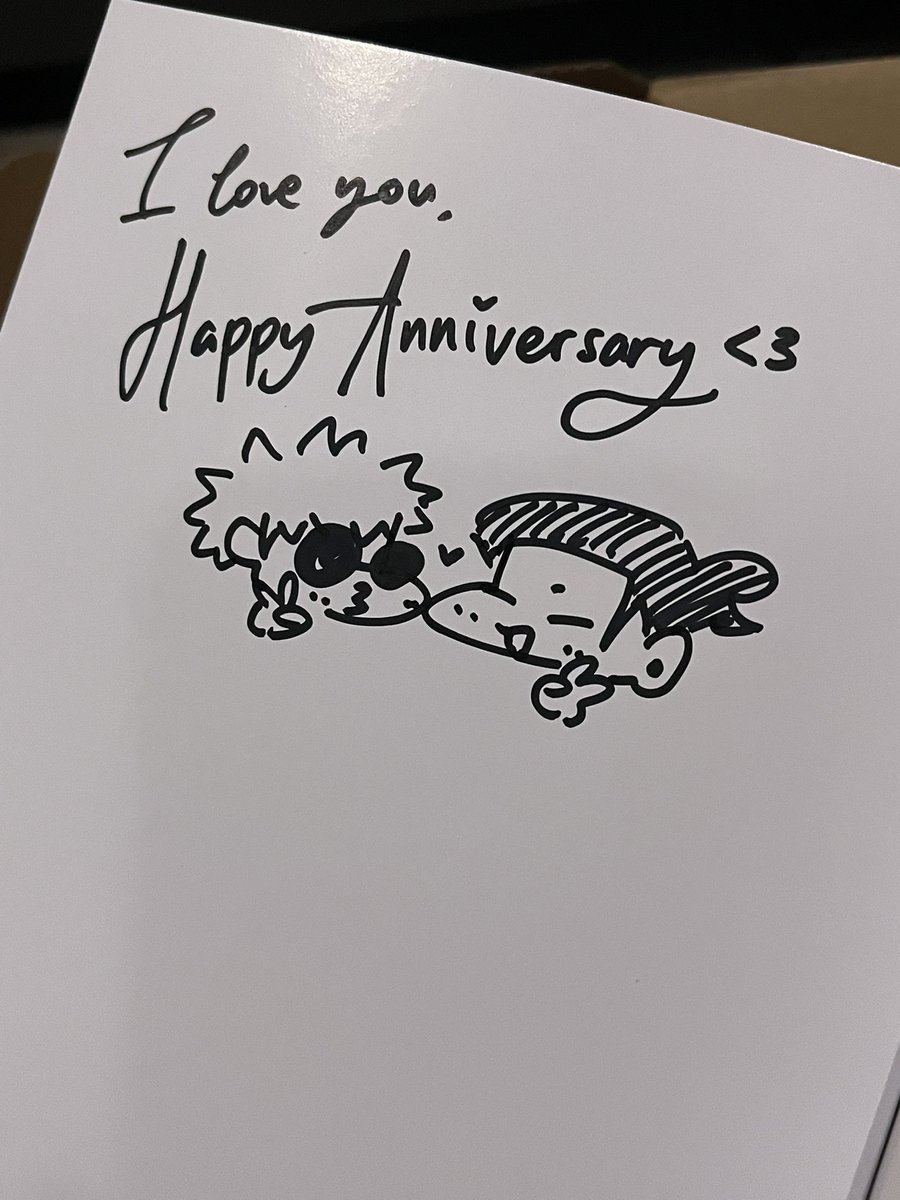 I love you.
Happy Anniversary <3